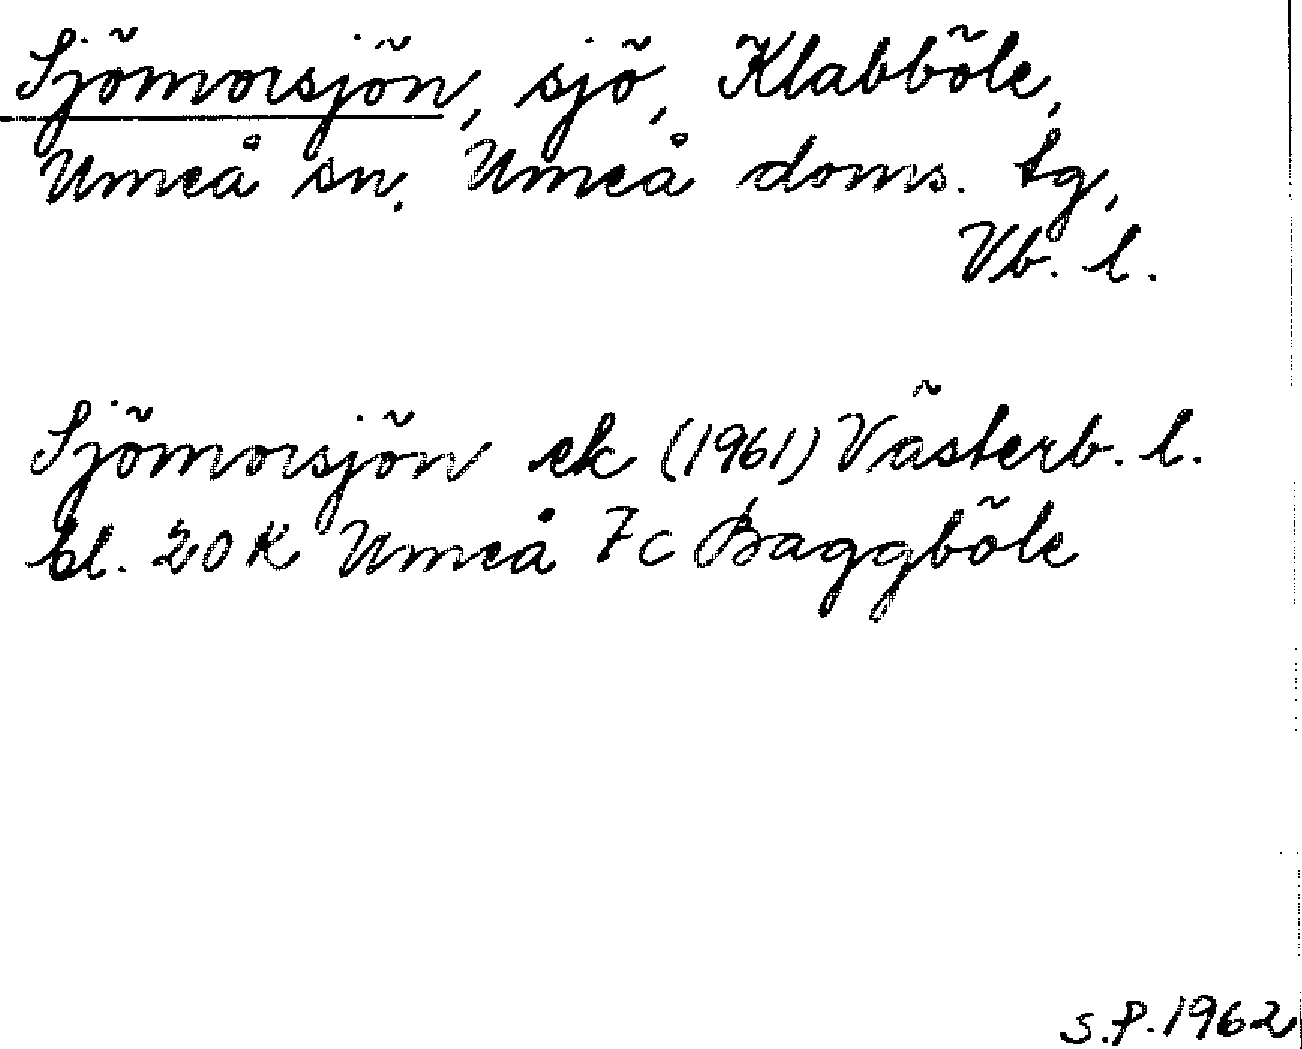 Sjömorsjön, sjö, Klabböle,
Umeå sn, Umeå doms. tg,
Vb. l.
Sjömorsjön ek (1961) Västerb. l.
bl. 20 K Umeå 7c Baggböle
S.P. 1962